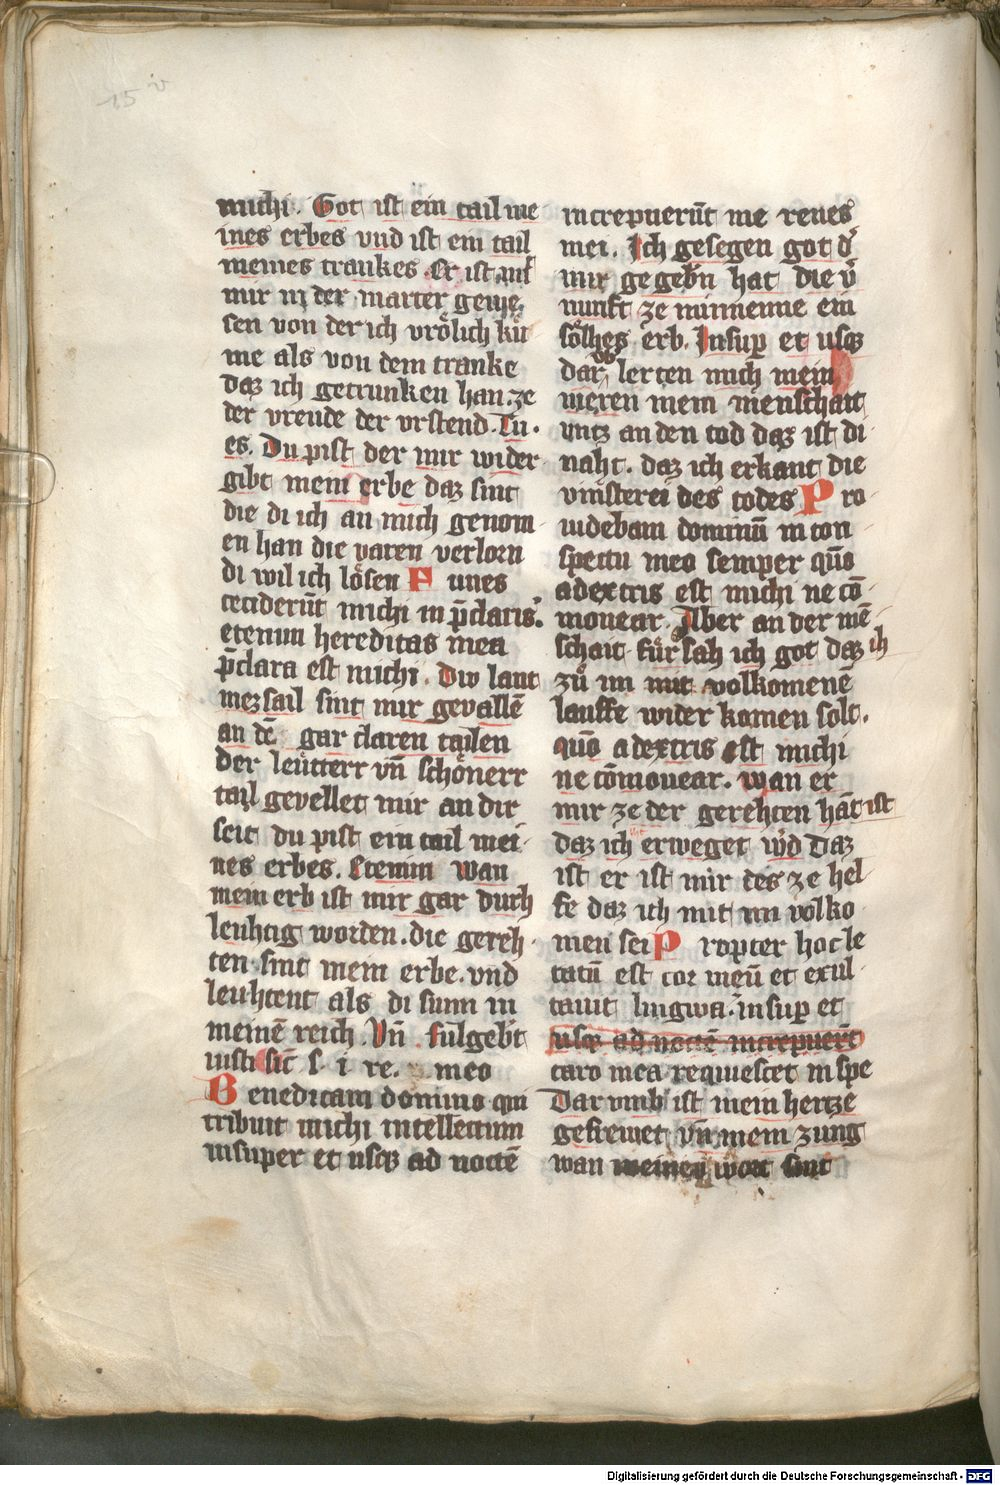 15 v
michi. Got ist ein tail me
ines erbes vnd ist ein tail
meines trankes. Er ist mit
mir in der marter gewe
sen von der ich vrölich kü
me als von dem tranke
daz ich getrunken han. ze
der vreude der vrstend. Tu
es. Du pist der mir wider
gibt mein erbe daz sint
die di ich an mich genom
en han die varen verlorn
di wil ich lösen Funes
ceciderūt michi in p̄claris.
etenim hereditas mea
p̄clara est michi. Diw lant
mezsail sint mir gevallē
an dē gar claren tailen
der leütterr vn̄ schönerr
tail gevellet mir an dir
seit du pist ein tail mei
nes erbes. Etenim wan
mein erb ist mir gar durh
leuhtig worden. die gereh
ten sint mein erbe. vnd
leuhtent als di sunn in
meinē reich. Vn̄ fulgebt
iusti sic̄ s i re. meo
Benedicam domino qui
tribuit michi intellectum
insuper et usqz ad noctē
increpuerūt me renes
mei. Ich gesegen got d'
mir gegebn hat die v'
nunft ze minnenne ein
sölhes erb. Insup et usqz
dar vb lerten mich mein
nieren mein menschait
vntz an den tod daz ist di
naht. daz ich erkant die
vinsterei des todes Pro
uidebam dominū in con
spectu meo semper qm̄
a dextris est michi ne cō
mouear. Aber an der mē
schait für sah ich got daz ih
zü im mit volkomenē
lauffe wider komen solt.
qm̄ a dextris est michi
ne cōmouear. wan er
mir ze der gerehten hāt ist
daz ich iht erweget w'd Daz
ist er ist mir des ze hel
fe daz ich mit im volko
men sei Propter hoc le
tatū est cor meū et exul
tauit lingwa. insup et
usqz ad noctē increpuerūt
caro mea requiescet in spe
Dar vmb ist mein hertze
gefrewet vn̄ mein zung
wan meinev wort sint
Digitalisierung gefördert durch die Deutsche Forschungsgemeinschaft - DFG